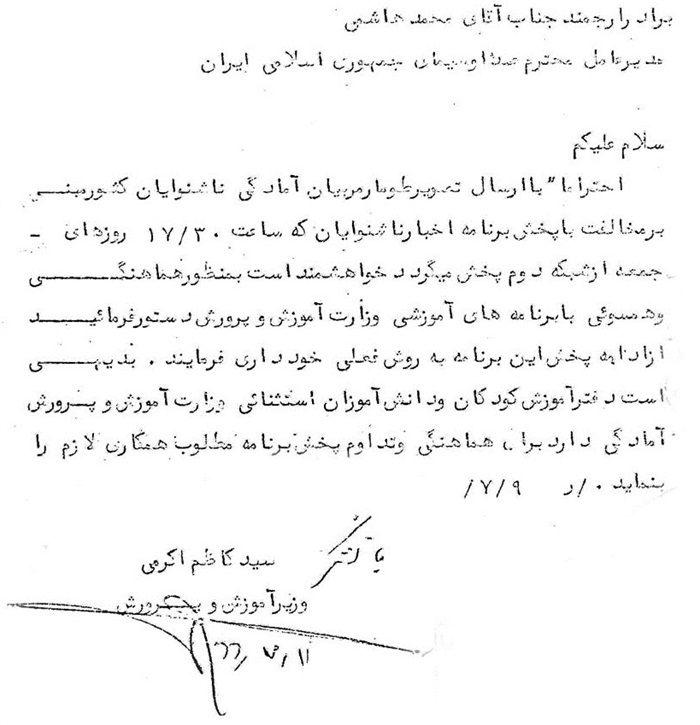 برادر ارجمند جناب آقای محمد هاشمی
مدیرعامل محترم صدا و سیمای جمهوری اسلامی ایران
سلام علیکم
احتراما" با ارسال تصویر طومار مربیان آمادگی ناشنوایان کشور مبنی
بر مخالفت با پخش برنامه اخبار ناشنوایان که ساعت ۱۷/۳۰ روزهای -
جمعه از شبکه دوم پخش میگردد خواهشمند است بمنظور هماهنگی
و همسوئی با برنامه های آموزشی وزارت آموزش و پرورش دستور فرمائید
از ادامه پخش این برنامه به روش فعلی خودداری فرمایند . بدیهی
است دفتر آموزش کودکان و دانش آموزان استثنائی وزارت آموزش و پرورش
آمادگی دارد برای هماهنگی و تداوم پخش برنامه مطلوب همکاری لازم را
بنماید ۰/ر ۷/۹/
با تشکر
سید کاظم اکرمی
وزیر آموزش و پرورش
۶۶٫۷٫۱۱